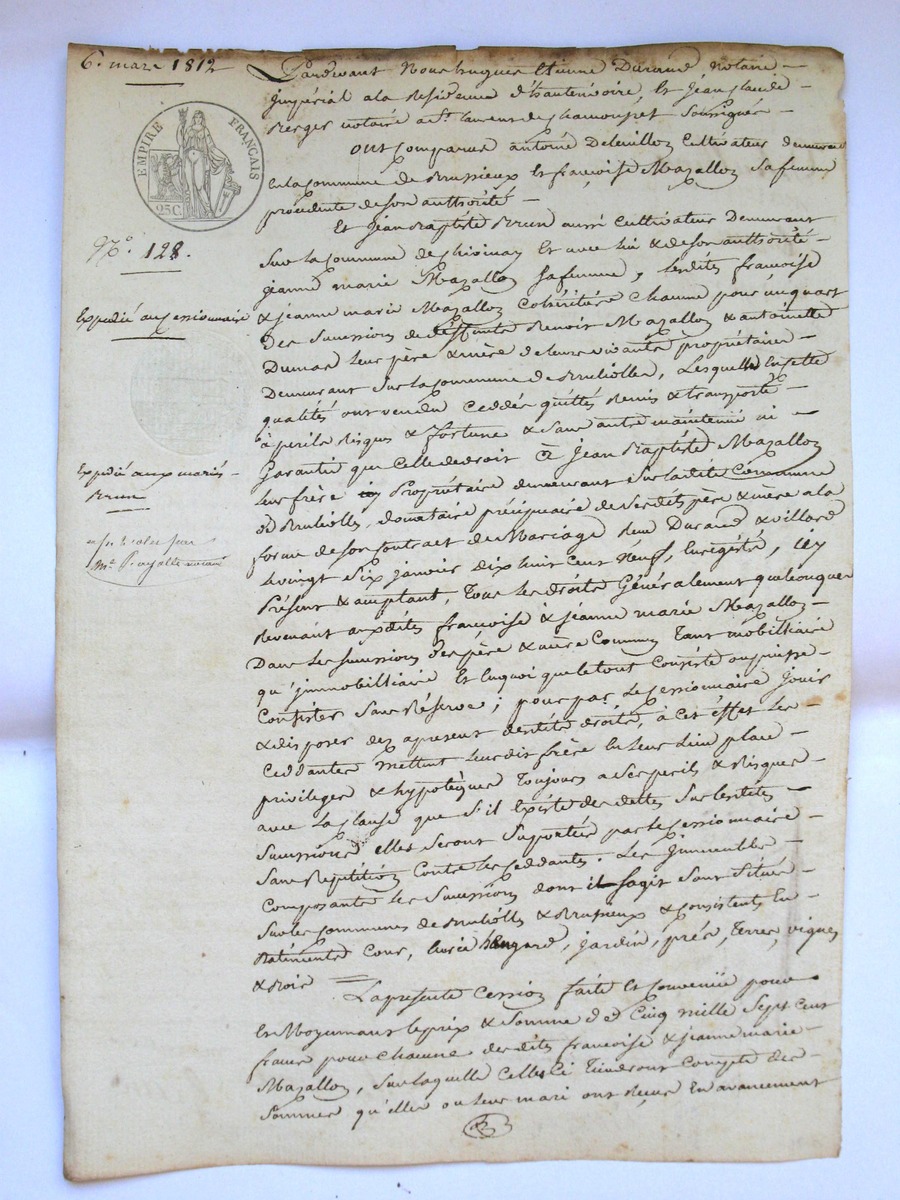 6. mars 1812
EMPIRE FRANÇAIS
25 C.
N.º 128.
Expedié au cessionnaire
Expedié aux mariés
Brun
Pardevant Nous hugues Etienne Durand notaire
imperial a la Residence d'hauterivoire, Et jean claude
Berger notaire a St. laurent de chamousset soussignés
ont comparus antoine Deleuillon Cultivateur demeurant
En la commune de Brussieux Et françoise Mazallon sa femme
procédente de son authorité
Et Jean Baptiste Brun aussi Cultivateur Demeurant
Sur la commune de chivinay Et avec lui & de son authorité
jeanne marie Mazallon sa femme, lesdites francoise
& jeanne marie Mazallon Cohéritière chacune pour un quart
Des Successions de deffunts Benoit Mazallon & antoinette
Dumas leur père & mère de leurs vivants propriétaires
Demeurant Sur la Commune de Brulioles, Lesquelles En cette
qualités ont vendu Ceddés quittés Remis & transporté
à perils Risques & fortune & sans autre maintenue ni
Garantie que Celle de droit à Jean Baptiste Mazallon
leur frère Propriétaire demeurant sur ladite Commune
de Brulioles, donataire préciputaire de sesdits père & mère a la
forme de son contract de Mariage Reçu Durand & villard
le vingt Six janvier dix huit Cent Neuf, Enregistré, icy
Présent & aceptant, Tous les droits Généralement quelconques
Revenant auxdites francoise & jeanne marie Mazallon
Dans les successions des père & mère Communs Tant mobilliaire
qu'immobilliaire Et En quoi que le tout Consiste ou puisse
Consister Sans Réserve; pour par le Cessionnaire jouir
& disposer des apresent desdits droits, à cet effet les
Ceddantes mettent leurdit frère En leur lieu place
privileges & hypotèques Toujours a ses perils & Risques
avec la clause que S'il Existe des dettes Sur lesdites
Successions Elles seront Supportées par le Cessionnaire
Sans Repetition Contre les Ceddantes. Les Immeubles
Composants les Successions dont il s'agit Sont Situés
Sur les Communes de Brulioles & Brussieux & Consistents En
Batiments Cour, hangard, jardin, prés, Terres, vignes
& Bois
La presente Cession faite Et Convenüe pour
Et Moyennant le prix & Somme de Cinq mille Sept Cent
francs pour chacune desdites francoise & jeanne marie
Mazallon, Sur laquelle Celles ci Tiendront Compte des
Sommes qu'elles ou leurs mari ont Reçues En avancement